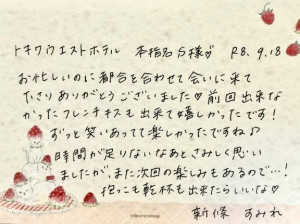 トキワウエストホテル 本指名 S様♡ R8.9.18
お忙しいのに都合を合わせて会いに来て
下さりありがとうございました♡ 前回出来な
かったフレンチキスも出来て嬉しかったです!
ずっと笑いあってて楽しかったですね♪
時間が足りないなあとさみしく思い
ましたが、また次回の楽しみもあるので…!
抱っこも乾杯も出来たらいいな♡
新條 すみれ